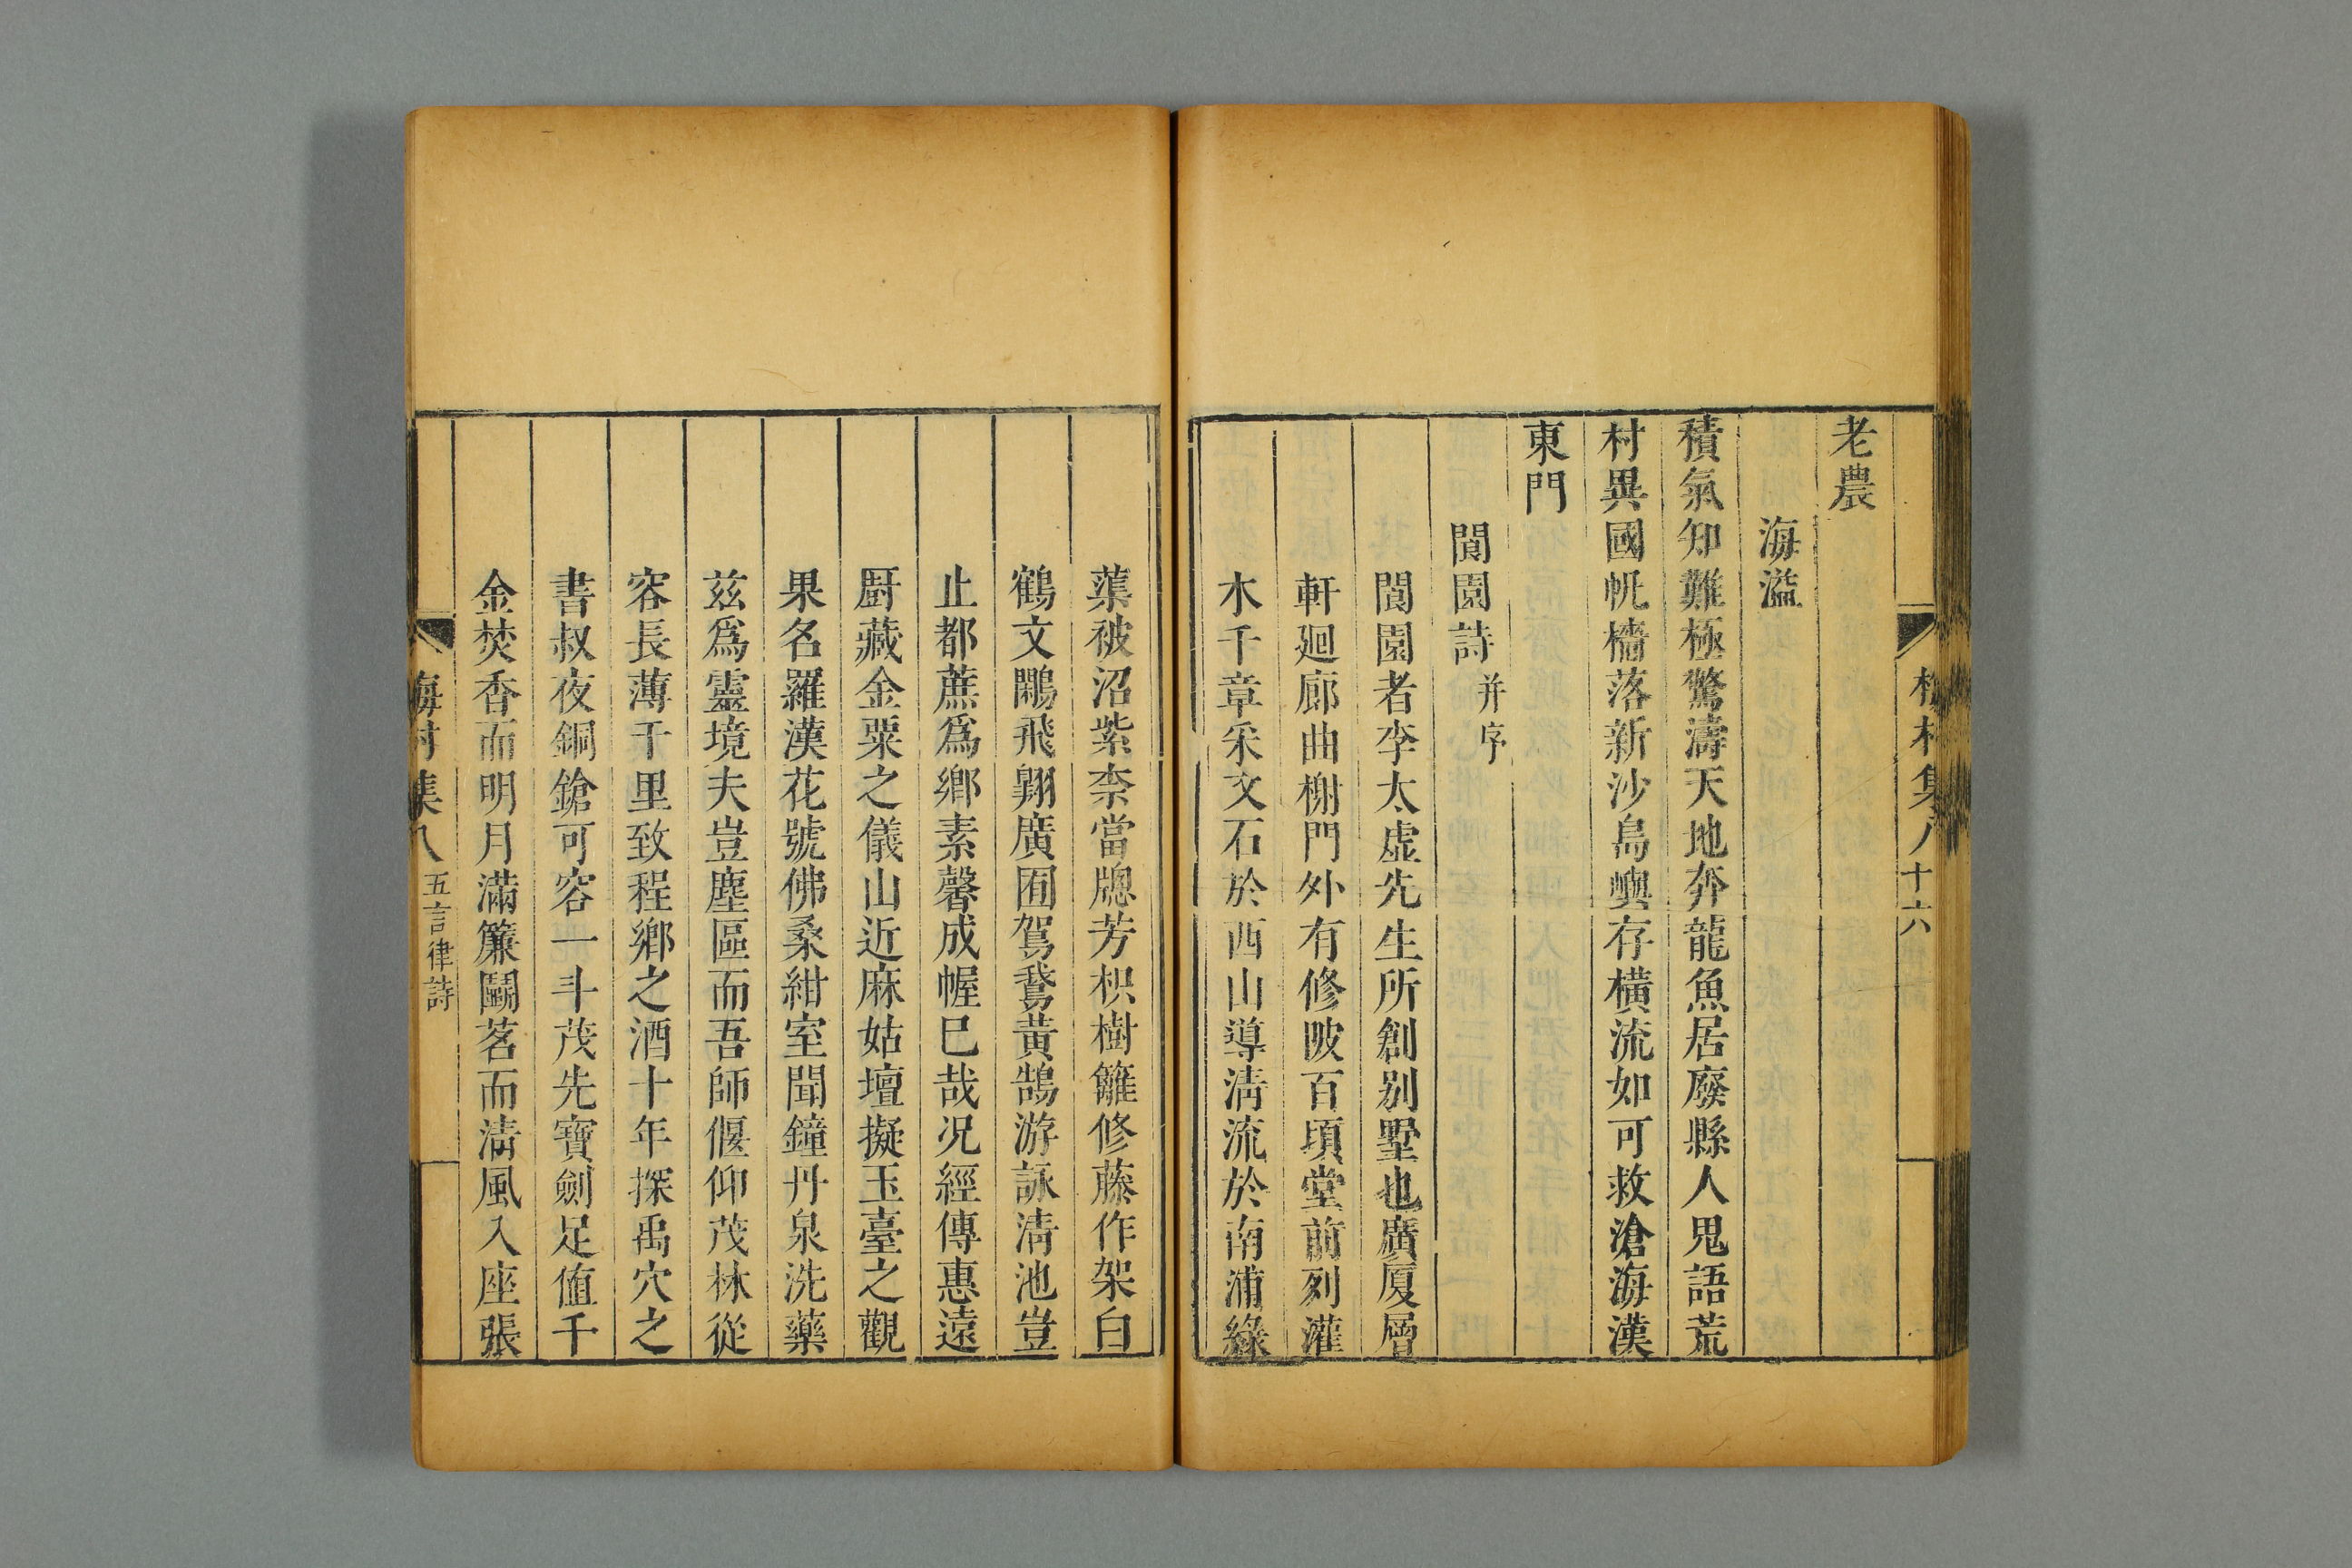 梅村集八 十六
老農
海溢
積氣知難極驚濤天地奔龍魚居廢縣人鬼語荒
村異國帆檣落新沙島嶼存橫流如可救滄海漢
東門
閬園詩 并序
閬園者李太虛先生所創别墅也廣厦層
軒廻廊曲榭門外有修陂百頃堂前列灌
木千章采文石於西山導淸流於南浦綠
蕖被沼紫柰當牕芳枳樹籬修藤作架白
鶴文鷴飛翔廣囿駕鵞黃鵠游詠淸池豈
止都蔗爲鄉素馨成幄巳哉况經傳惠遠
厨藏金粟之儀山近麻姑壇擬玉臺之觀
果名羅漢花號佛桑紺室聞鐘丹泉洗藥
兹爲靈境夫豈塵區而吾師偃仰茂林從
容長薄千里致程鄉之酒十年探禹穴之
書叔夜銅鎗可容一斗茂先寶劍足值千
金焚香而明月滿簾鬭茗而淸風入座張
梅村集八 五言律詩